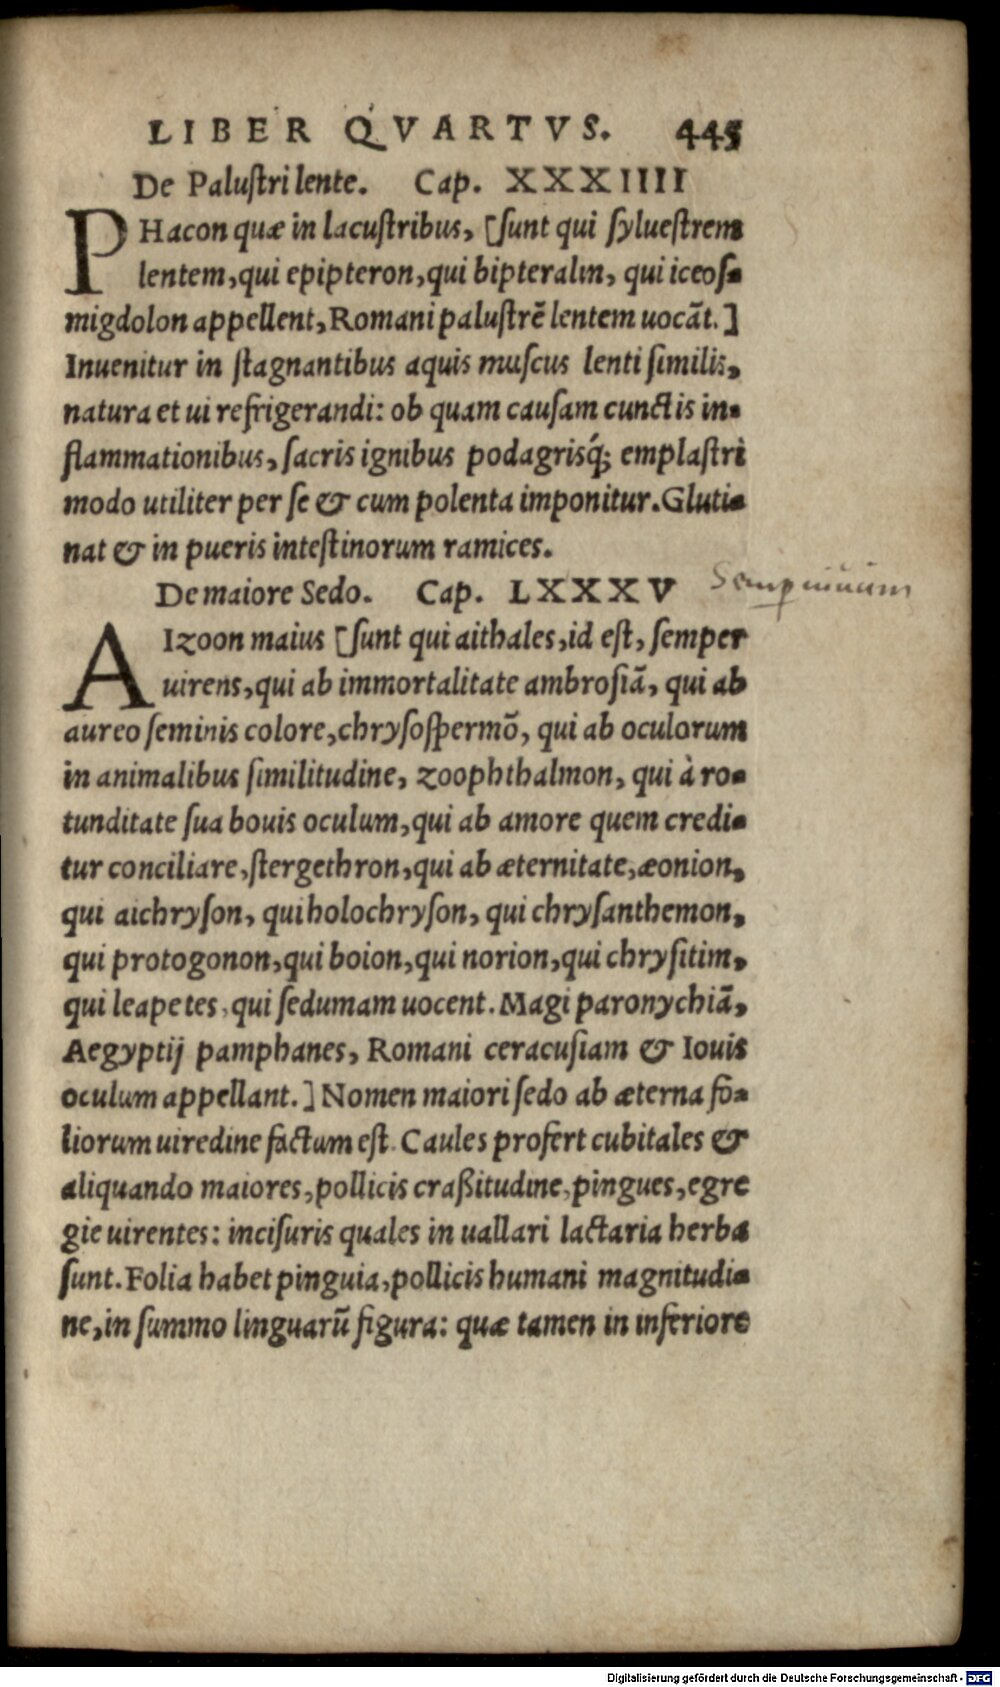 LIBER QVARTVS. 445
De Palustri lente. Cap. XXXIIII
PHacon quæ in lacustribus, [sunt qui syluestrem
lentem, qui epipteron, qui bipteralin, qui iceos-
migdolon appellent, Romani palustrē lentem uocāt.]
Inuenitur in stagnantibus aquis muscus lenti similis,
natura et ui refrigerandi: ob quam causam cunctis in-
flammationibus, sacris ignibus podagrisq́; emplastri
modo utiliter per se & cum polenta imponitur. Gluti-
nat & in pueris intestinorum ramices.
De maiore Sedo. Cap. LXXXV
Semperuiuum
AIzoon maius [sunt qui aithales, id est, semper
uirens, qui ab immortalitate ambrosiā, qui ab
aureo seminis colore, chrysospermō, qui ab oculorum
in animalibus similitudine, zoophthalmon, qui à ro-
tunditate sua bouis oculum, qui ab amore quem credi-
tur conciliare, stergethron, qui ab æternitate, æonion,
qui aichryson, qui holochryson, qui chrysanthemon,
qui protogonon, qui boion, qui norion, qui chrysitim,
qui leapetes, qui sedum am uocent. Magi paronychiā,
Aegyptij pamphanes, Romani ceracusiam & Iouis
oculum appellant.] Nomen maiori sedo ab æterna fo-
liorum uiredine factum est. Caules profert cubitales &
aliquando maiores, pollicis craßitudine, pingues, egre
gie uirentes: incisuris quales in uallari lactaria herba
sunt. Folia habet pinguia, pollicis humani magnitudi-
ne, in summo linguarū figura: quæ tamen in inferiore
Digitalisierung gefördert durch die Deutsche Forschungsgemeinschaft - DFG